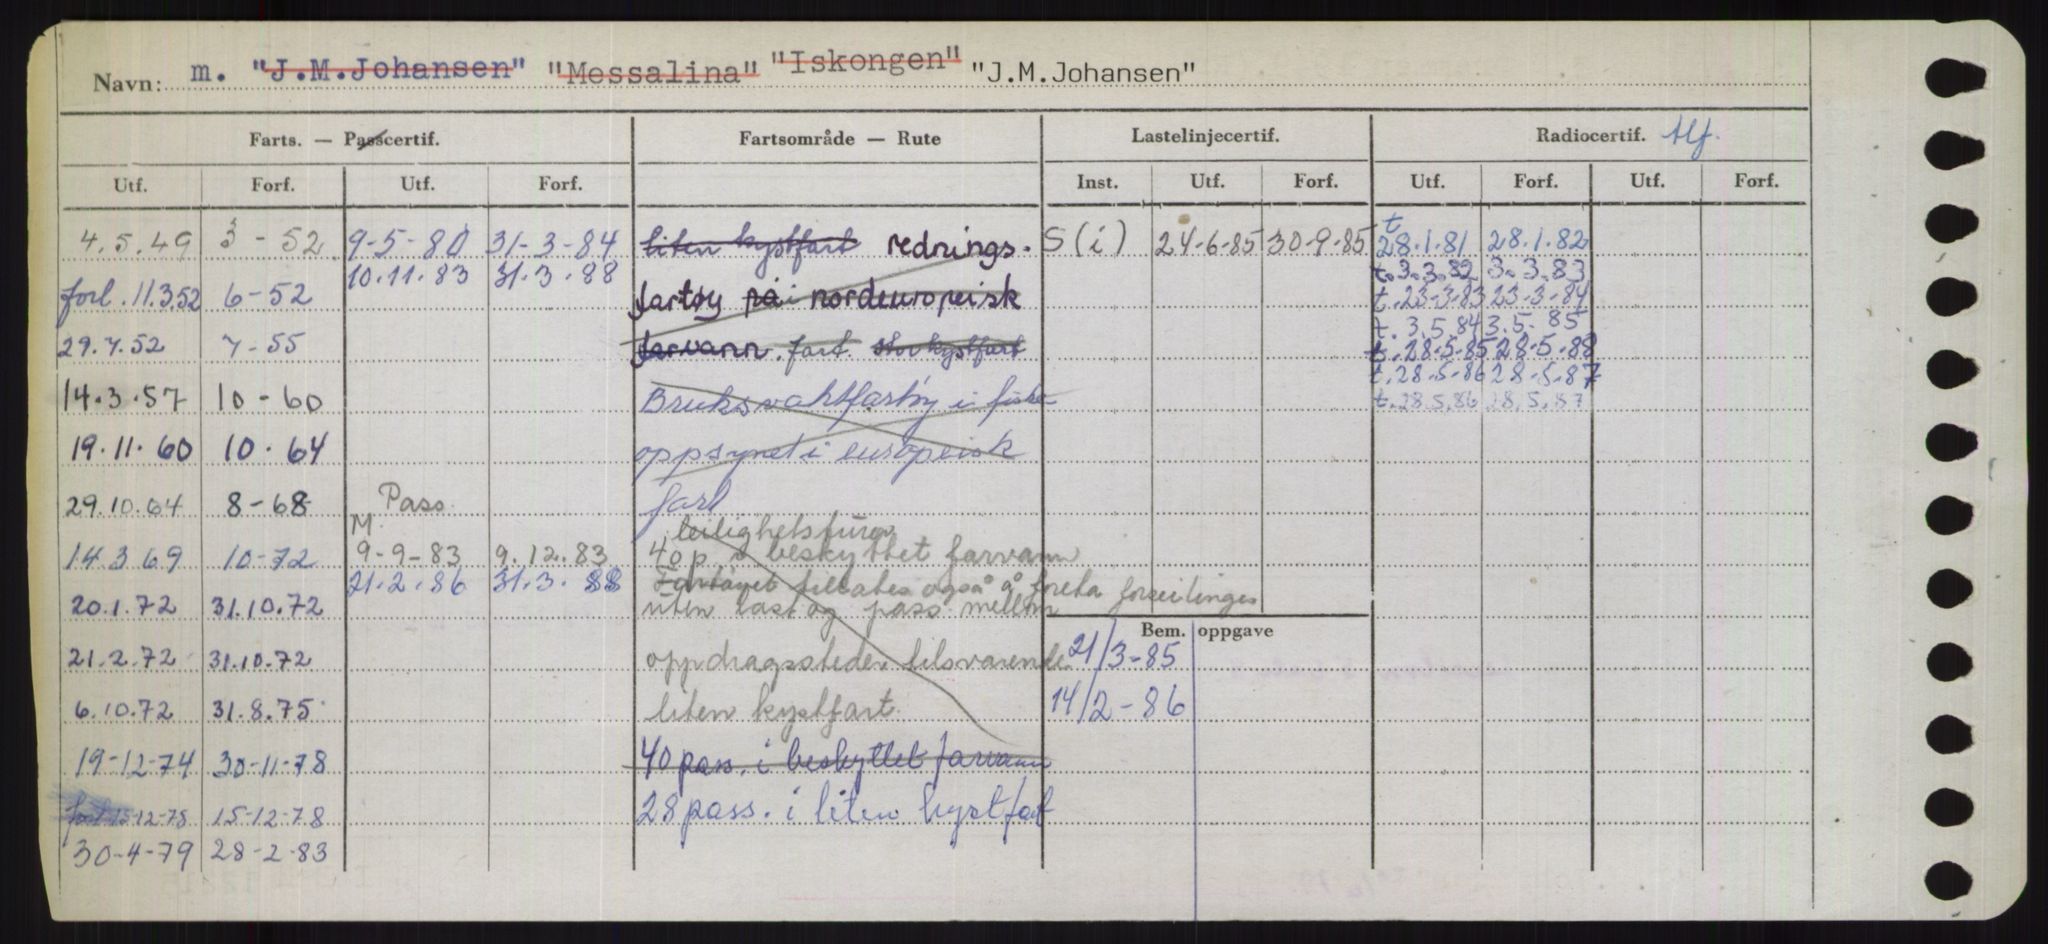 Navn: m. "J.M.Johansen" "Messalina" "Iskongen" "J.M.Johansen"
Farts. — Passcertif. Fartsområde — Rute Lastelinjecertif. Radiocertif. tlf.
Utf. Forf. Utf. Forf. Inst. Utf. Forf. Utf. Forf. Utf. Forf.
4.5.49 3 - 52 9-5-80 31-3-84 liten kystfart rednings- S (i) 24-6-85 30-9-85 t 28.1.81 28.1.82
10.11.83 31.3.88 t.3.3.82 3.3.83
forl. 11.3.52 6-52 fartøy på i nordeuropeisk t.23-3.83 23-3-84
t. 3.5.84 3.5.85
29.7.52 7-55 farvann. fart. stor kystfart t.28.5.85 28.5.88
t.28.5.86 28.5.87
14.3.57 10-60 Bruksvaktfartøy i fiske t.28.5.86 28.5.87
19.11.60 10.64 oppsynet i europeisk
29.10.64 8-68 Pass. fart
M. leilighetsturer
14.3.69 10-72 9-9-83 9.12.83 40 p. i beskyttet farvann
21.2.86 31.3.88 Fartøyet tillates også å foreta forseilinger
20.1.72 31.10.72 uten last og pass mellom
Bem. oppgave
21.2.72 31.10.72 oppdragssteder tilsvarende 21/3-85
6.10.72 31.8.75 liten kystfart. 14/2-86
19-12-74 30-11-78 40 pass. i beskyttet farvann
forl. 15-12-78 15-12-78 28 pass. i liten kystfart
30-4-79 28-2-83